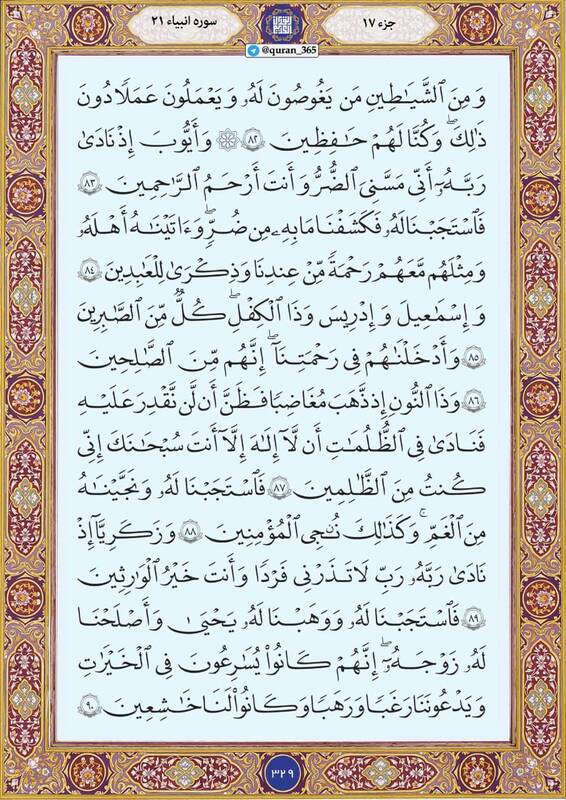 جزء ۱۷
سوره انبیاء ۲۱
@quran_365
وَمِنَ ٱلشَّيَـٰطِينِ مَن يَغُوصُونَ لَهُۥ وَيَعْمَلُونَ عَمَلًا دُونَ
ذَٰلِكَ ۖ وَكُنَّا لَهُمْ حَـٰفِظِينَ ۸۲ ۞ وَأَيُّوبَ إِذْ نَادَىٰ
رَبَّهُۥٓ أَنِّي مَسَّنِيَ ٱلضُّرُّ وَأَنتَ أَرْحَمُ ٱلرَّٰحِمِينَ ۸۳
فَٱسْتَجَبْنَا لَهُۥ فَكَشَفْنَا مَا بِهِۦ مِن ضُرٍّ ۖ وَءَاتَيْنَـٰهُ أَهْلَهُۥ
وَمِثْلَهُم مَّعَهُمْ رَحْمَةً مِّنْ عِندِنَا وَذِكْرَىٰ لِلْعَـٰبِدِينَ ۸۴
وَإِسْمَـٰعِيلَ وَإِدْرِيسَ وَذَا ٱلْكِفْلِ ۖ كُلٌّ مِّنَ ٱلصَّـٰبِرِينَ
۸۵ وَأَدْخَلْنَـٰهُمْ فِي رَحْمَتِنَآ ۖ إِنَّهُم مِّنَ ٱلصَّـٰلِحِينَ
۸۶ وَذَا ٱلنُّونِ إِذ ذَّهَبَ مُغَـٰضِبًا فَظَنَّ أَن لَّن نَّقْدِرَ عَلَيْهِ
فَنَادَىٰ فِي ٱلظُّلُمَـٰتِ أَن لَّآ إِلَـٰهَ إِلَّآ أَنتَ سُبْحَـٰنَكَ إِنِّي
كُنتُ مِنَ ٱلظَّـٰلِمِينَ ۸۷ فَٱسْتَجَبْنَا لَهُۥ وَنَجَّيْنَـٰهُ
مِنَ ٱلْغَمِّ ۚ وَكَذَٰلِكَ نُـۨجِي ٱلْمُؤْمِنِينَ ۸۸ وَزَكَرِيَّآ إِذْ
نَادَىٰ رَبَّهُۥ رَبِّ لَا تَذَرْنِي فَرْدًا وَأَنتَ خَيْرُ ٱلْوَٰرِثِينَ
۸۹ فَٱسْتَجَبْنَا لَهُۥ وَوَهَبْنَا لَهُۥ يَحْيَىٰ وَأَصْلَحْنَا
لَهُۥ زَوْجَهُۥٓ ۚ إِنَّهُمْ كَانُوا۟ يُسَـٰرِعُونَ فِي ٱلْخَيْرَٰتِ
وَيَدْعُونَنَا رَغَبًا وَرَهَبًا ۖ وَكَانُوا۟ لَنَا خَـٰشِعِينَ ۹۰
۳۲۹